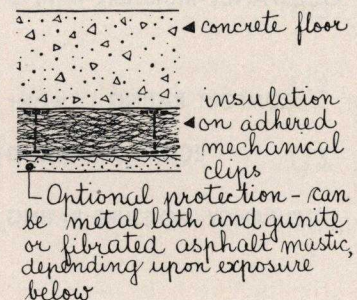 concrete floor
insulation
on adhered
mechanical
clips
Optional protection - can
be metal lath and gunite
or fibrated asphalt mastic,
depending upon exposure
below